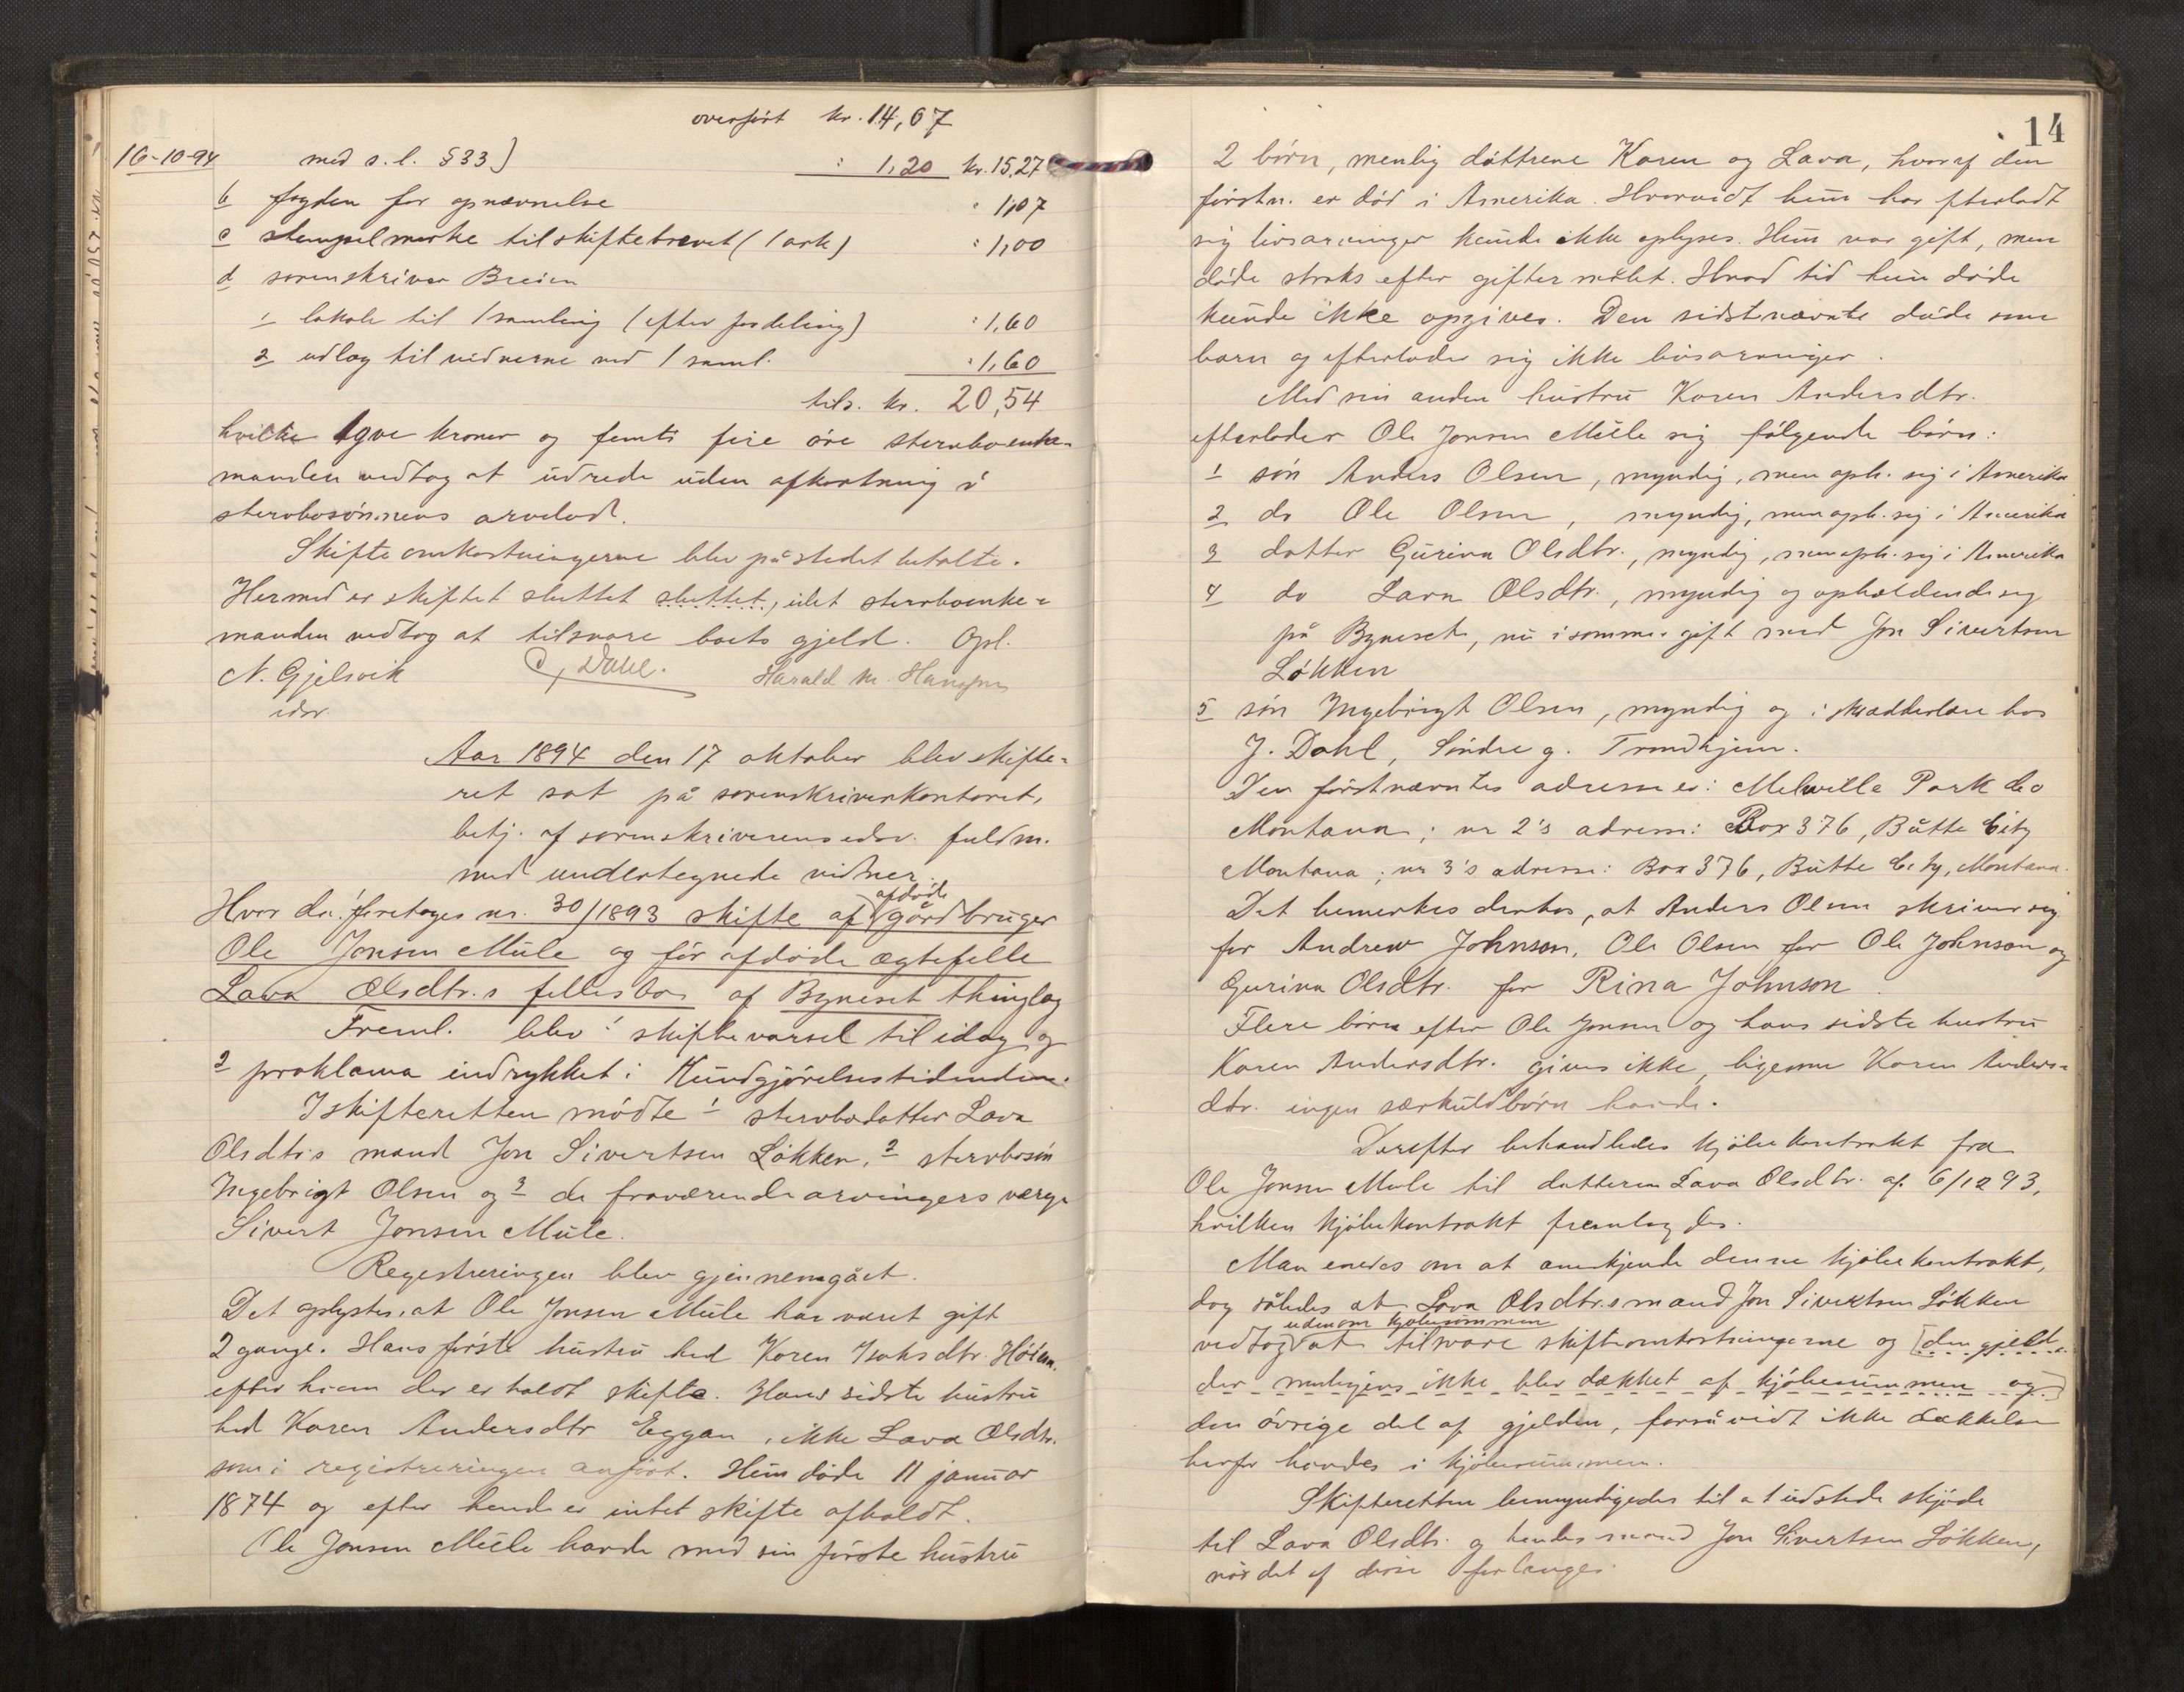 overført kr. 14,07
16-10-94 med s. l. §33) : 1,20 kr. 15,27
b fogden for opnævnelse : 1,07
c stempelmerke til skiftebrevet (1 ark) : 1,00
d sorenskriver Breien
1 lokale til 1 samling (efter fordeling) : 1,60
2 udlæg til vidnerne ved 1 saml. : 1,60
tils. kr. 20,54
hvilke tyve kroner og femti fire øre stervboenke-
manden vedtog at udrede uden afkortning i
stervbosønnens arvelod.
Skifteomkostningerne blev på stedet betalte.
Hermed er skiftet sluttet sluttet, idet stervboenke-
manden vedtog at tilsvare boets gjeld. Opl.
N. Gjelsvik Dahl. Harald M. Hansen
edsv.
Aar 1894 den 17 oktober blev skifte-
ret sat på sorenskriverkontoret,
betj. af sorenskriverens edsv. fuldm.
med undertegnede vidner.
Hvor da: foretages nr. 30/1893 skifte af afdøde gårdbruger
Ole Jonsen Mule og før afdøde ægtefelle
Lava Olsdtr.s fellesbo af Byneset thinglag
Freml. blev 1 skiftevarsel til idag og
2 proklama indrykket i Kundgjørelsestidenden.
I skifteretten mødte 1 stervbodatter Lava
Olsdtr.s mand Jon Sivertsen Løkken, 2 stervbosøn
Ingebrigt Olsen og 3 de fraværende arvingers verge
Sivert Jonsen Mule.
Registreringen blev gjennemgået.
Det oplystes, at Ole Jonsen Mule har været gift
2 gange. Hans første hustru hed Karen Isaksdtr. Høiem,
efter hvem der er holdt skifte. Hans sidste hustru
hed Karen Andersdtr Eggan, ikke Lava Olsdtr.
som i registreringen anført. Hun døde 11 januar
1874 og efter hende er intet skifte afholdt.
Ole Jonsen Mule havde med sin første hustru
14
2 børn, nemlig døttrene Karen og Lava, hvoraf den
førstn. er død i Amerika. Hvorvidt hun har efterladt
sig livsarvinger kunde ikke oplyses. Hun var gift, men
døde straks efter giftermålet. Hvad tid hun døde
kunde ikke opgives. Den sidstnævnte døde som
barn og efterlader sig ikke livsarvinger.
Med sin anden hustru Karen Andersdtr.
efterlader Ole Jonsen Mule sig følgende børn:
1 søn Anders Olsen, myndig, men oph. sig i Amerika
2 do Ole Olsen, myndig, men oph. sig i Amerika
3 datter Gurina Olsdtr., myndig, men oph. sig i Amerika
4 do Lava Olsdtr., myndig og opholdende sig
på Byneset, nu i sommer gift med Jon Sivertsen
Løkken
5 søn Ingebrigt Olsen, myndig og i skrædderlære hos
J. Dahl, Søndre g. Trondhjem.
Den førstnævntes adresse er: Melville Park Co
Montana; nr 2's adresse: Box 376, Butte City
Montana; nr 3's adresse: Box 376, Butte City, Montana.
Det bemerkes derhos, at Anders Olsen skriver sig
for Andrew Johnson, Ole Olsen for Ole Johnson og
Gurina Olsdtr. for Rina Johnson.
Flere børn efter Ole Jonsen og hans sidste hustru
Karen Andersdtr. gives ikke, ligesom Karen Anders-
dtr. ingen særkuldbørn havde.
Derefter behandledes kjøbekontrakt fra
Ole Jonsen Mule til datteren Lava Olsdtr. af 6/12 93,
hvilken kjøbekontrakt fremlagdes.
Man enedes om at anerkjende denne kjøbekontrakt,
dog således at Lava Olsdtr.s mand Jon Sivertsen Løkken
udenom kjøbesummen
vedtog at tilsvare skifteomkostningerne og [den gjeld
der muligens ikke blev dækket af kjøbesummen og]
den øvrige del af gjelden, forsåvidt ikke dækkelse
herfor havdes i kjøbesummen.
Skifteretten bemyndigedes til at udstede skjøde
til Lava Olsdtr. og hendes mand Jon Sivertsen Løkken,
når det af disse forlanges.